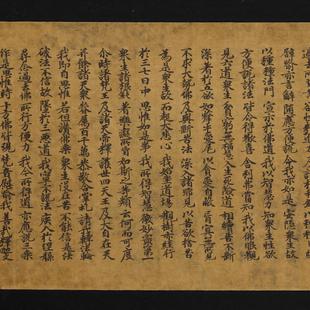 譬喻亦言辭 隨應方便說 今我亦如是 安隱衆生故
以種種法門 宣示於佛道 我以智慧力 知衆生性欲
方便說諸法 皆令得歡喜 舍利弗當知 我以佛眼觀
見六道衆生 貧窮無福慧 入生死險道 相續苦不斷
深著於五欲 如犛牛愛尾 以貪愛自蔽 盲瞑無所見
不求大勢佛 及與斷苦法 深入諸邪見 以苦欲捨苦
爲是衆生故 而起大悲心 我始坐道場 觀樹亦經行
於三七日中 思惟如是事 我所得智慧 微妙最第一
衆生諸根鈍 著樂癡所盲 如斯之等類 云何而可度
尒時諸梵王 及諸天帝釋 護世四天王 及大自在天
并餘諸天衆 眷屬百千萬 恭敬合掌礼 請我轉法輪
我即自思惟 若但讚佛乘 衆生沒在苦 不能信是法
破法不信故 墜於三惡道 我寧不說法 疾入於涅槃
尋念過去佛 所行方便力 我今所得道 亦應說三乘
作是思惟時 十方佛皆現 梵音慰喻我 善哉釋迦文